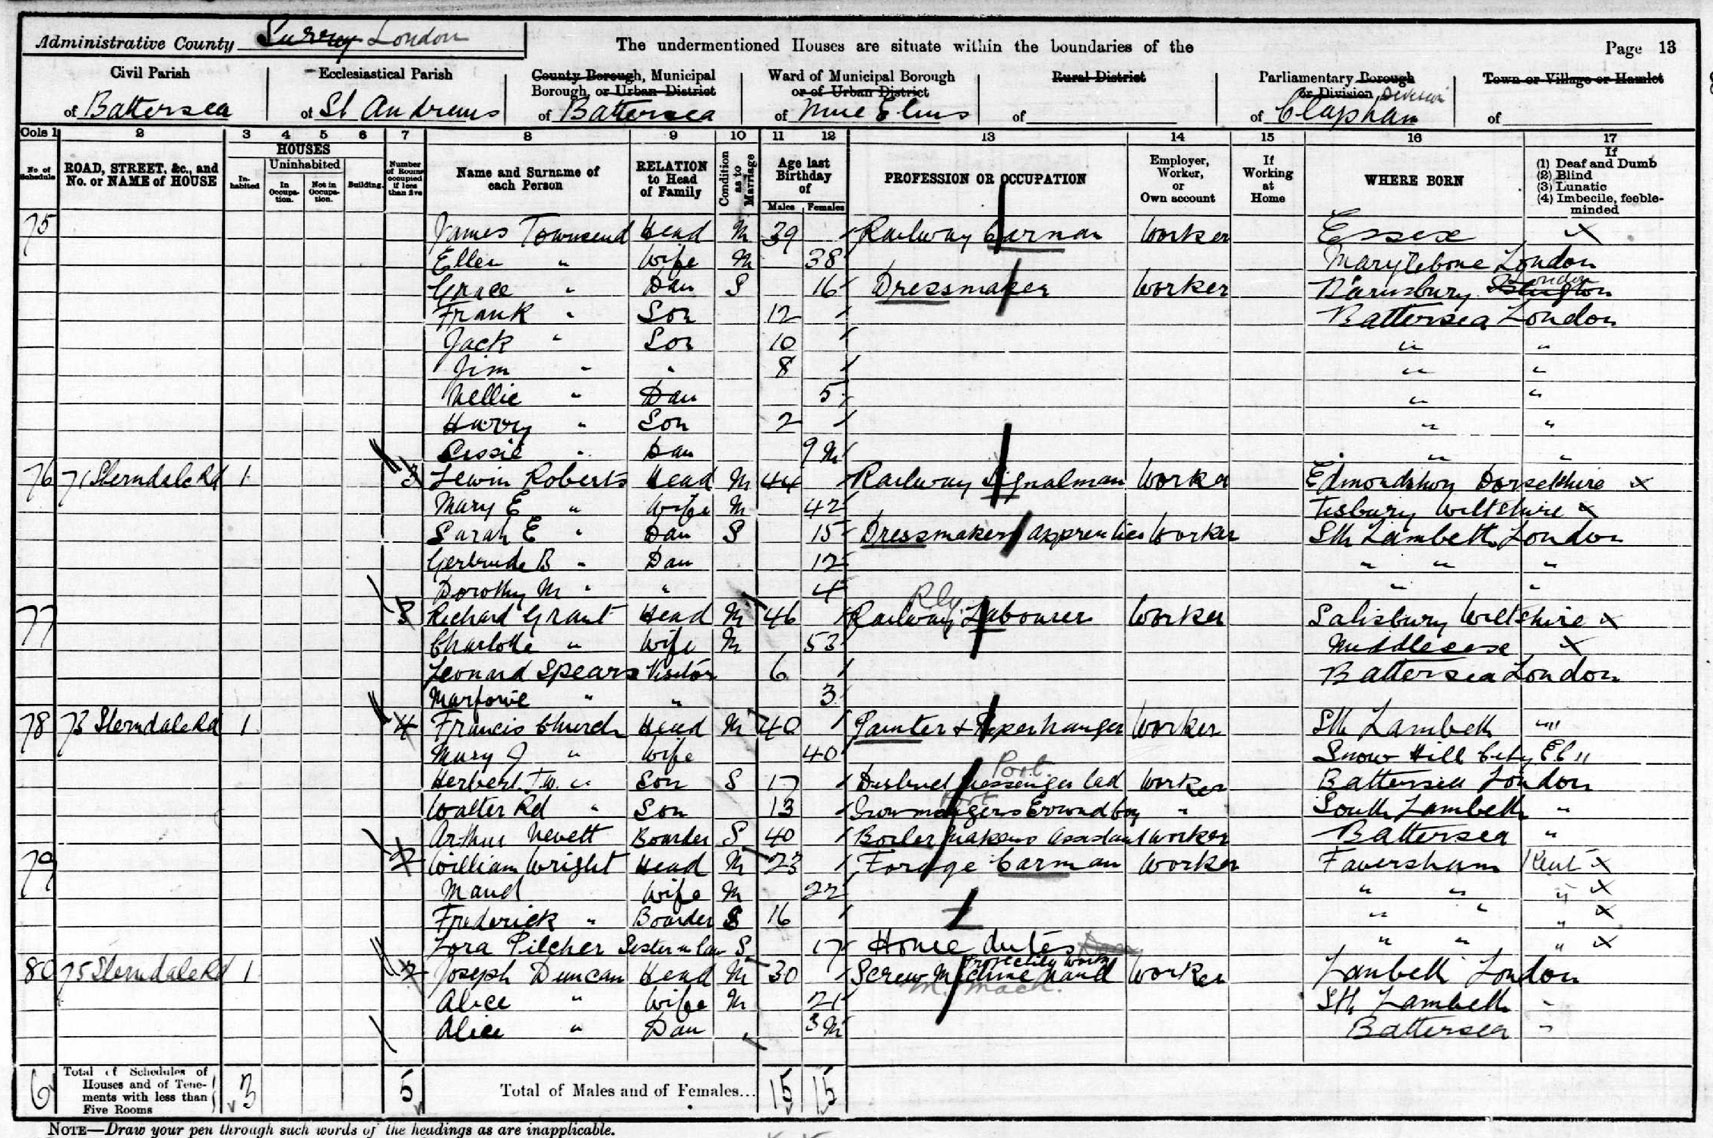 Administrative County Surrey London
The undermentioned Houses are situate within the boundaries of the
Page 13
Civil Parish of Battersea
Ecclesiastical Parish of St Andrews
County Borough, Municipal Borough, or Urban District of Battersea
Ward of Municipal Borough or of Urban District of Nine Elms
Rural District of
Parliamentary Borough or Division Division of Clapham
Town or Village or Hamlet of
Cols 1 2 3 4 5 6 7 8 9 10 11 12 13 14 15 16 17
No of Schedule
ROAD, STREET, &c., and No. or NAME of HOUSE
HOUSES
Inhabited
Uninhabited
In Occupation.
Not in Occupation.
Building.
Number of Rooms occupied if less than five
Name and Surname of each Person
RELATION to Head of Family
Condition as to Marriage
Age last Birthday of
Males Females
PROFESSION OR OCCUPATION
Employer, Worker, or Own account
If Working at Home
WHERE BORN
If (1) Deaf and Dumb (2) Blind (3) Lunatic (4) Imbecile, feeble-minded
75 James Townsend Head M 39 Railway Carman Worker Essex x
Ellen " Wife M 38 Marylebone London
Grace " Dau S 16 Dressmaker Worker Barnsbury Islington London
Frank " Son 12 Battersea London
Jack " Son 10 " "
Jim " " 8 " "
Nellie " Dau 5 " "
Harry " Son 2 " "
Cissie " Dau 9 M " "
76 71 Sterndale Rd 1 3 Lewin Roberts Head M 44 Railway Signalman Worker Edmondshon Dorsetshire x
Mary E " Wife M 42 Tisbury Wiltshire x
Sarah E " Dau S 15 Dressmakers Apprentice Worker Sth Lambeth London
Gertrude B " Dau 12 " " "
Dorothy M " " 4 " "
77 3 Richard Grant Head M 46 Railway Rly Labourer Worker Salisbury Wiltshire x
Charlotte " Wife M 53 Middlesex x
Leonard Spears Visitor 6 Battersea London
Marjorie " " 3
78 73 Sterndale Rd 1 4 Francis Church Head M 40 Painter & Paperhanger Worker Sth Lambeth "
Mary J " Wife 40 Snow Hill City E.C "
Herbert F W " Son S 17 District Messenger Lad Port. Worker Battersea London
Walter Rd " Son 13 Ironmongers Errand boy " South Lambeth "
Arthur Nevett Boarder S 40 Boiler Makers Assistant Worker Battersea "
79 2 William Wright Head M 23 Forage Carman Worker Faversham Kent x
Maud Wife M 22 " " " x
Frederick " Boarder S 16 " " " x
Lora Pilcher Sister in law S 17 Home duties " " " x
80 75 Sterndale Rd 1 2 Joseph Duncan Head M 30 Screw Machine Hand Projectile Works M. Mach. Worker Lambeth London
Alice " Wife M 21 Sth Lambeth "
Alice " Dau 3 M Battersea "
6 Total of Schedules of Houses and of Tenements with less than Five Rooms 3 5 Total of Males and of Females... 15 15
NOTE—Draw your pen through such words of the headings as are inapplicable.